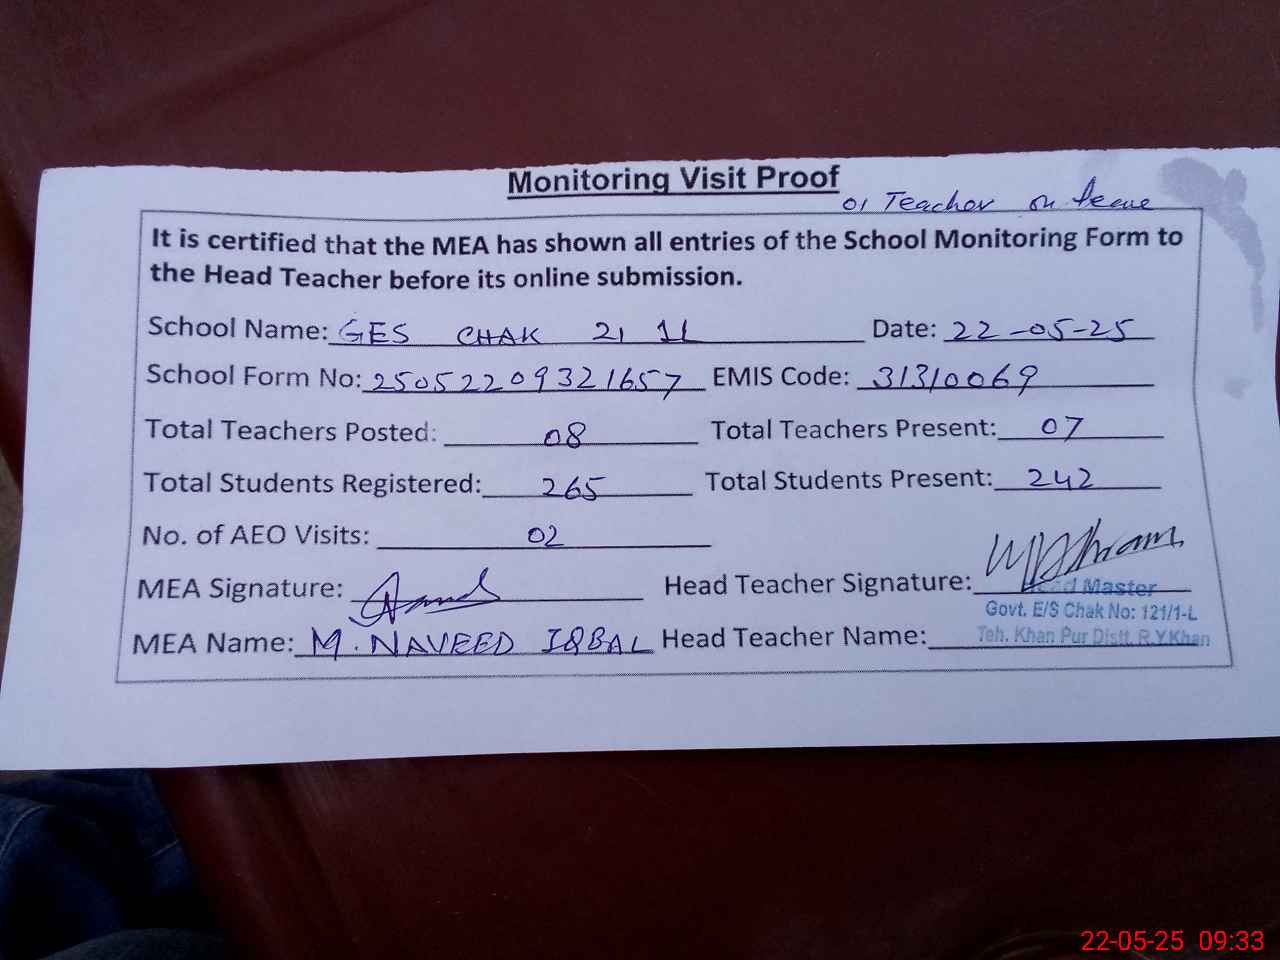 Monitoring Visit Proof
01 Teacher on leave
It is certified that the MEA has shown all entries of the School Monitoring Form to
the Head Teacher before its online submission.
School Name: GES CHAK 21 1L Date: 22-05-25
School Form No: 25052209321657 EMIS Code: 31310069
Total Teachers Posted: 08 Total Teachers Present: 07
Total Students Registered: 265 Total Students Present: 242
No. of AEO Visits: 02
MEA Signature: Head Teacher Signature:
Head Master
Govt. E/S Chak No: 121/1-L
MEA Name: M. NAVEED IQBAL Head Teacher Name: Teh. Khan Pur Distt. R.Y.Khan
22-05-25 09:33